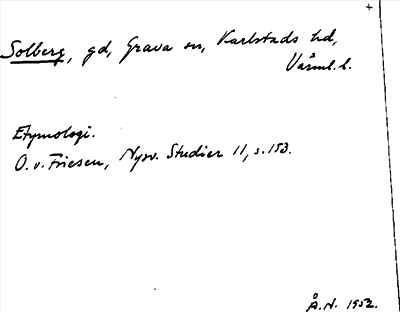 Solberg, gd, Grava sn, Karlstads hd,
Värml. l.
Etymologi.
O. v. Friesen, Nysv. Studier 11, s. 153.
Å. N. 1952.